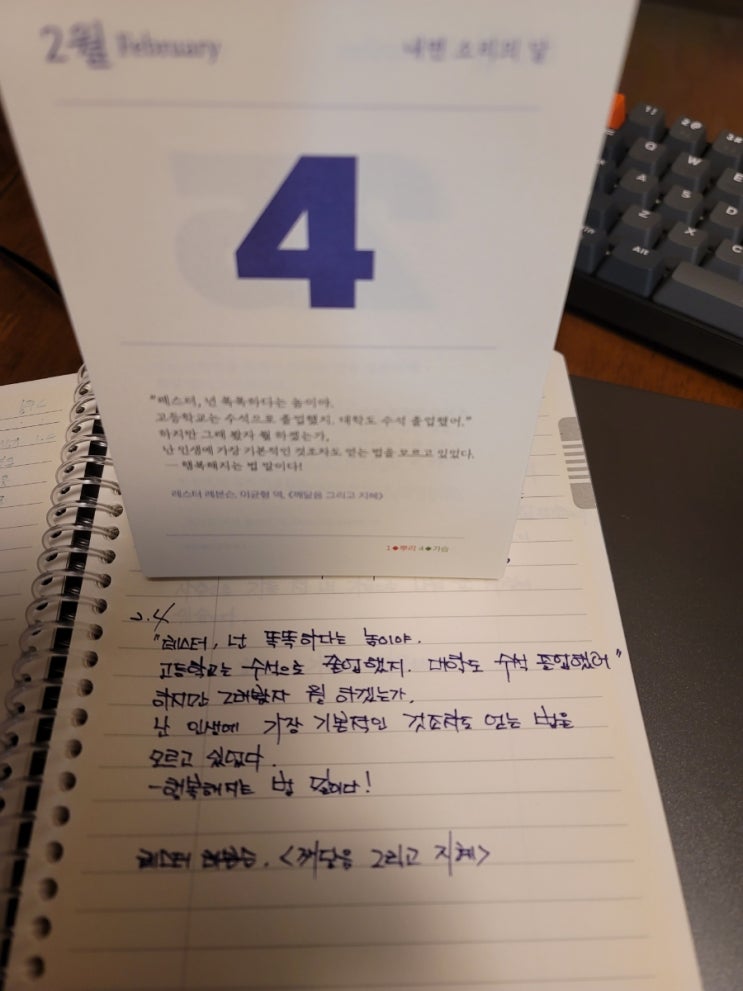 2월 February
내면 소리의 달
4
"레스터, 넌 똑똑하다는 놈이야.
고등학교는 수석으로 졸업했지. 대학도 수석 졸업했어."
하지만 그래 봤자 뭘 하겠는가,
난 인생에 가장 기본적인 것조차도 얻는 법을 모르고 있었다.
— 행복해지는 법 말이다!
레스터 레븐슨, 이균형 역, 《깨달음 그리고 지혜》
1◆뿌리 4◆가슴
2.4
"레스터, 넌 똑똑하다는 놈이야.
고등학교는 수석으로 졸업했지. 대학도 수석 졸업했어"
하지만 그래봤자 뭘 하겠는가,
난 인생에 가장 기본적인 것조차도 얻는 법을
모르고 있었다.
-행복해지는 법 말이다!
레스터 레븐슨, <깨달음 그리고 지혜>
Q
W
E
A
S
D
Z
X
C
Alt